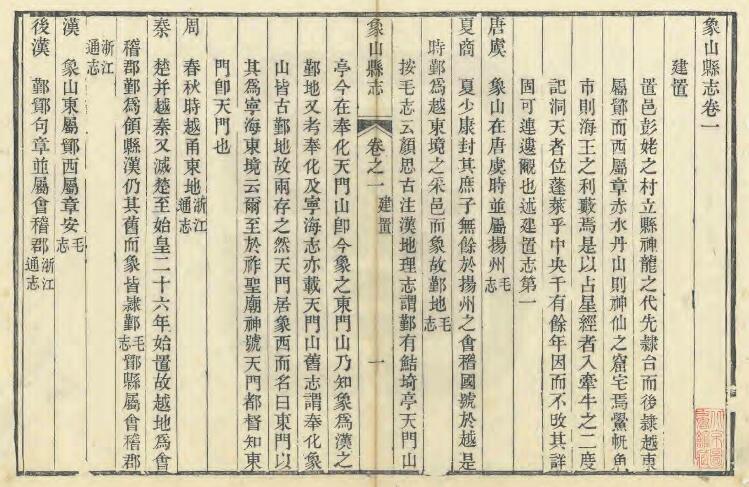 象山縣志卷一
建置
置邑彭姥之村立縣神龍之代先隸台而後隸越東
屬鄮而西屬章赤水丹山則神仙之窟宅焉鱟帆魚
市則海王之利藪焉是以占星經者入牽牛之二度
記洞天者位蓬萊乎中央千有餘年因而不改其詳
固可連遱觀也述建置志第一
唐虞 象山在唐虞時並屬揚州毛志
夏商 夏少康封其庶子無餘於揚州之會稽國號於越是
時鄞為越東境之采邑而象故鄞地毛志
按毛志云顏思古注漢地理志謂鄞有鮚埼亭天門山
象山縣志 卷之一 建置 一
亭今在奉化天門山卽今象之東門山乃知象爲漢之
鄞地又考奉化及寧海志亦載天門山舊志謂奉化象
山皆古鄞地故兩存之然天門居象西而名曰東門以
其爲寧海東境云爾至於祚聖廟神號天門都督知東
門卽天門也
周 春秋時越甬東地浙江通志
秦 楚并越秦又滅楚至始皇二十六年始置故越地爲會
稽郡鄞爲領縣漢仍其舊而象皆隸鄞毛志鄮縣屬會稽郡
浙江通志
漢 象山東屬鄮西屬章安毛志
後漢 鄞鄮句章並屬會稽郡浙江通志